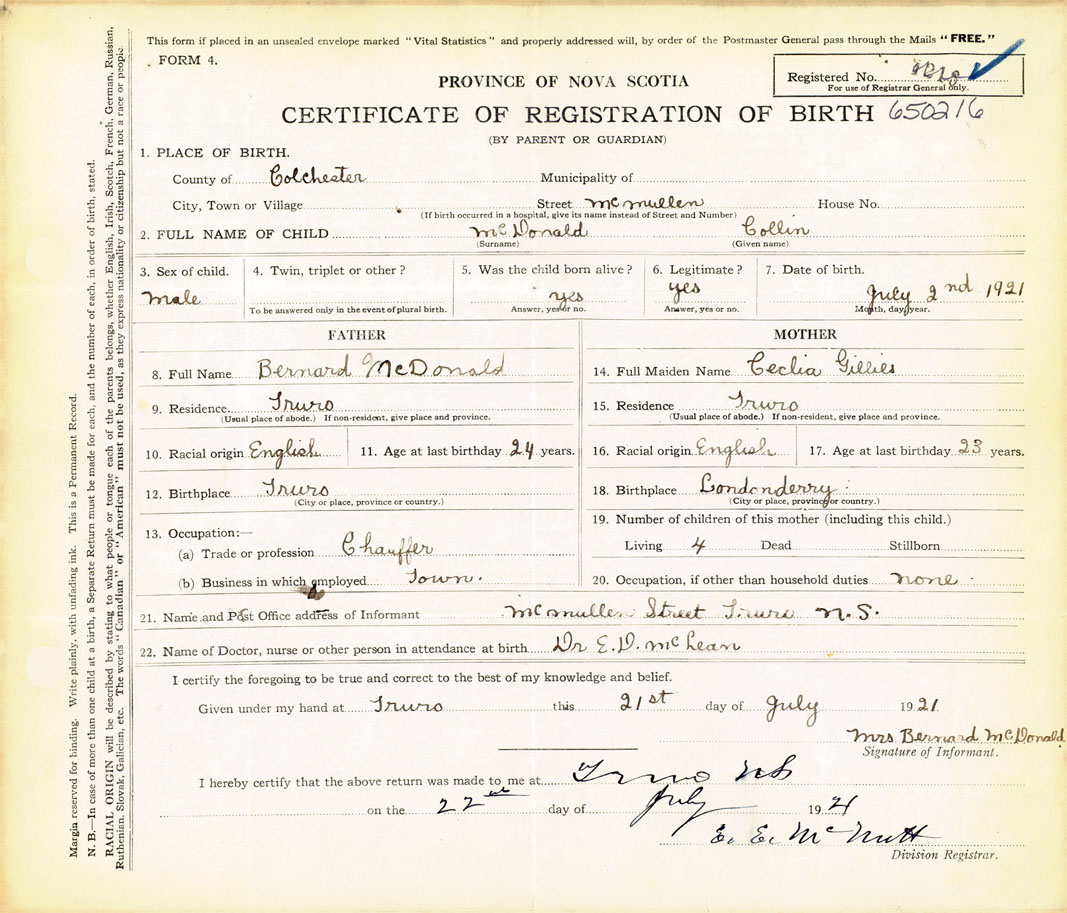 This form if placed in an unsealed envelope marked "Vital Statistics" and properly addressed will, by order of the Postmaster General pass through the Mails "FREE."
FORM 4.
Registered No.
For use of Registrar General only.
PROVINCE OF NOVA SCOTIA
CERTIFICATE OF REGISTRATION OF BIRTH 650216
(BY PARENT OR GUARDIAN)
1. PLACE OF BIRTH.
County of Colchester Municipality of
City, Town or Village Street McMullen House No.
(If birth occurred in a hospital, give its name instead of Street and Number)
2. FULL NAME OF CHILD McDonald Collin
(Surname) (Given name)
3. Sex of child. 4. Twin, triplet or other? 5. Was the child born alive? 6. Legitimate? 7. Date of birth.
Male yes yes July 2nd 1921
To be answered only in the event of plural birth. Answer, yes or no. Answer, yes or no. Month, day, year.
FATHER
8. Full Name Bernard McDonald
9. Residence Truro
(Usual place of abode.) If non-resident, give place and province.
10. Racial origin English 11. Age at last birthday 24 years.
12. Birthplace Truro
(City or place, province or country.)
13. Occupation:—
(a) Trade or profession Chauffer
(b) Business in which employed Town.
MOTHER
14. Full Maiden Name Ceclia Gillies
15. Residence Truro
(Usual place of abode.) If non-resident, give place and province.
16. Racial origin English 17. Age at last birthday 23 years.
18. Birthplace Londonderry
(City or place, province or country.)
19. Number of children of this mother (including this child.)
Living 4 Dead Stillborn
20. Occupation, if other than household duties none
21. Name and Post Office address of Informant McMullen Street Truro N.S.
22. Name of Doctor, nurse or other person in attendance at birth Dr E.D. McLean
I certify the foregoing to be true and correct to the best of my knowledge and belief.
Given under my hand at Truro this 21st day of July 1921
Mrs Bernard McDonald
Signature of Informant.
I hereby certify that the above return was made to me at Truro NS
on the 22nd day of July 1921
E. E. McNutt
Division Registrar.
Margin reserved for binding. Write plainly, with unfading ink. This is a Permanent Record.
N. B.—In case of more than one child at a birth, a Separate Return must be made for each, and the number of each, in order of birth, stated.
RACIAL ORIGIN will be described by stating to what people or tongue each of the parents belongs, whether English, Irish, Scotch, French, German, Russian,
Ruthenian, Slovak, Galician, etc. The words "Canadian" or "American" must not be used, as they express nationality or citizenship but not a race or people.